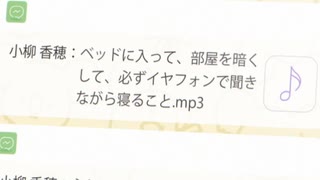 小柳 香穂：ベッドに入って、部屋を暗く
して、必ずイヤフォンで聞き
ながら寝ること.mp3